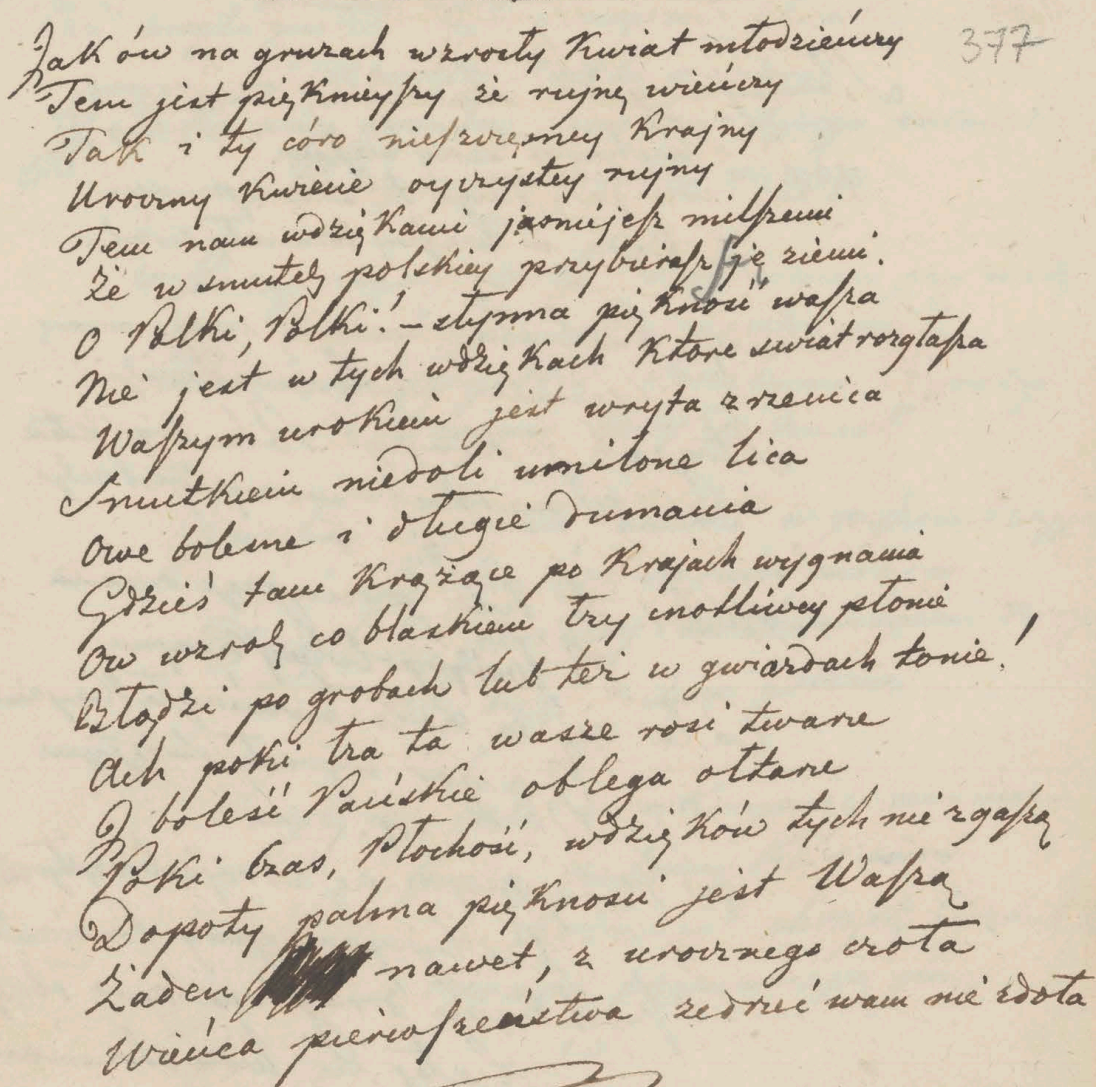 Jak ów na gruzach wzrosły Kwiat młodzieńczy
377
Tem jest pięknieyszy że rujnę wieńczy
Tak i ty córo nieszczęsney Krajny
Uroczny Kwiecie oyczystey rujny
Tem nam wdziękami jaśniejesz milszemi
Że w smutek polskiey przybierasz się ziemi.
O Polki, Polki! – słynna piękność wasza
Nie jest w tych wdziękach które swiat rozgłasza
Waszym urokiem jest wryta zrzenica
Smutkiem niedoli umilone lica
Owe bolesne i długie dumania
Gdzieś tam krążące po Krajach wygnania
Ow wzrok co blaskiem łzy cnotliwey płonie
Błądzi po grobach lub też w gwiazdach tonie!
Ach poki łza ta wasze rosi twarze
I boleść Pańskie oblega ołtarze
Poki Czas, Płochość, wdzięków tych nie zgaszą
Dopoty palma piękności jest Waszą
Żaden nawet, z urocznego czoła
Wieńca pierwszeństwa zedrzeć wam nie zdoła